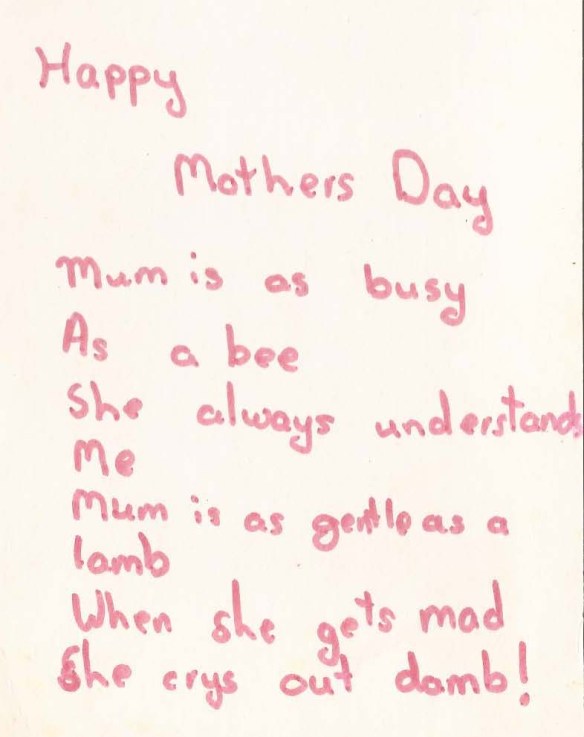 Happy
Mothers Day
Mum is as busy
As a bee
She always understands
Me
Mum is as gentle as a
lamb
When she gets mad
She crys out damb!